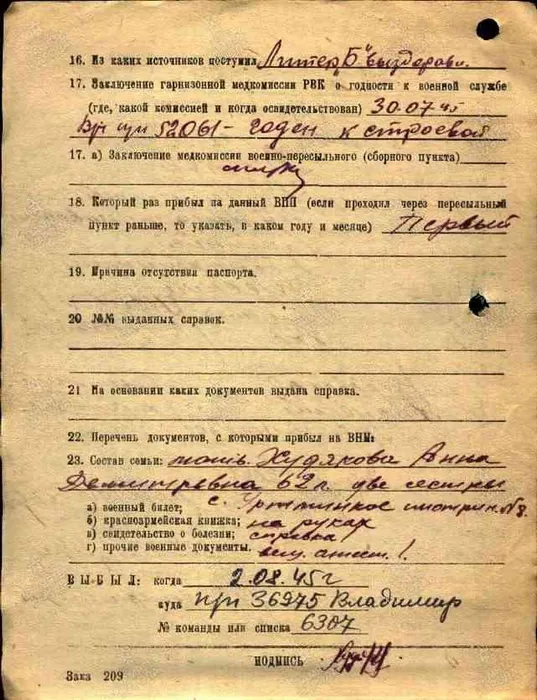 16. Из каких источников поступил Литер „Б" выздоров.
17. Заключение гарнизонной медкомиссии РВК о годности к военной службе
(где, какой комиссией и когда освидетельствован) 30.07 45
при 52061 - годен к строевой
17. а) Заключение медкомиссии военно-пересыльного (сборного пункта)
18. Который раз прибыл на данный ВПП (если проходил через пересыльный
пункт раньше, то указать, в каком году и месяце) Первый
19. Причина отсутствия паспорта.
20 №№ выданных справок.
21 На основании каких документов выдана справка.
22. Перечень документов, с которыми прибыл на ВПП:
23. Состав семьи: мать. Худякова Анна
Демитревна 62 г. две сестры
а) военный билет; с.
б) красноармейская книжка; на руках
в) свидетельство о болезни; справка
г) прочие военные документы. вещ. аттест. 1.
ВЫБЫЛ: когда 2.08.45 г
куда п/п 36975 Владимир
№ команды или списка 6307
ПОДПИСЬ
Заказ 209